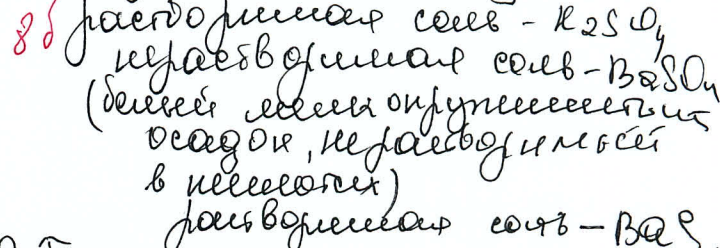 8б растворимая соль - K2SO4
нерастворимая соль - BaSO4
(белый мелкокружинчатый
осадок, нерастворимый
в кислотах)
растворимая соль - BaS